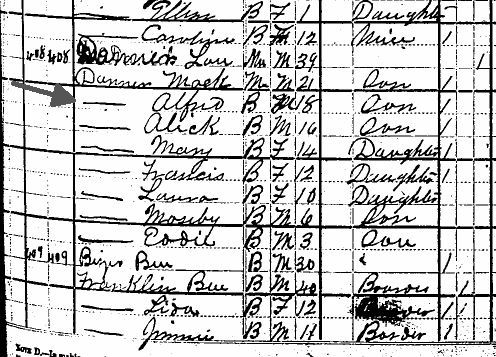 Ellen B F 1 Daughter
Caroline B F 12 Niece 1
408 408 Dannick Lou Mu 39 1
Danner Mack M 21 Son 1
— Alfred B M 18 Son 1
— Alick B M 16 Son 1
— Mary B F 14 Daughter 1
— Francis B F 12 Daughter 1
— Laura B F 10 Daughter
— Moseby B M 6 Son
— Eddie B M 3 Son
409 409 Ben B M 30 1
Franklin Ben B M 40 Boarder 1 1
— Liza B F 12 1 1
— Jimmie B M 11 Border 1
NOTE D.—In